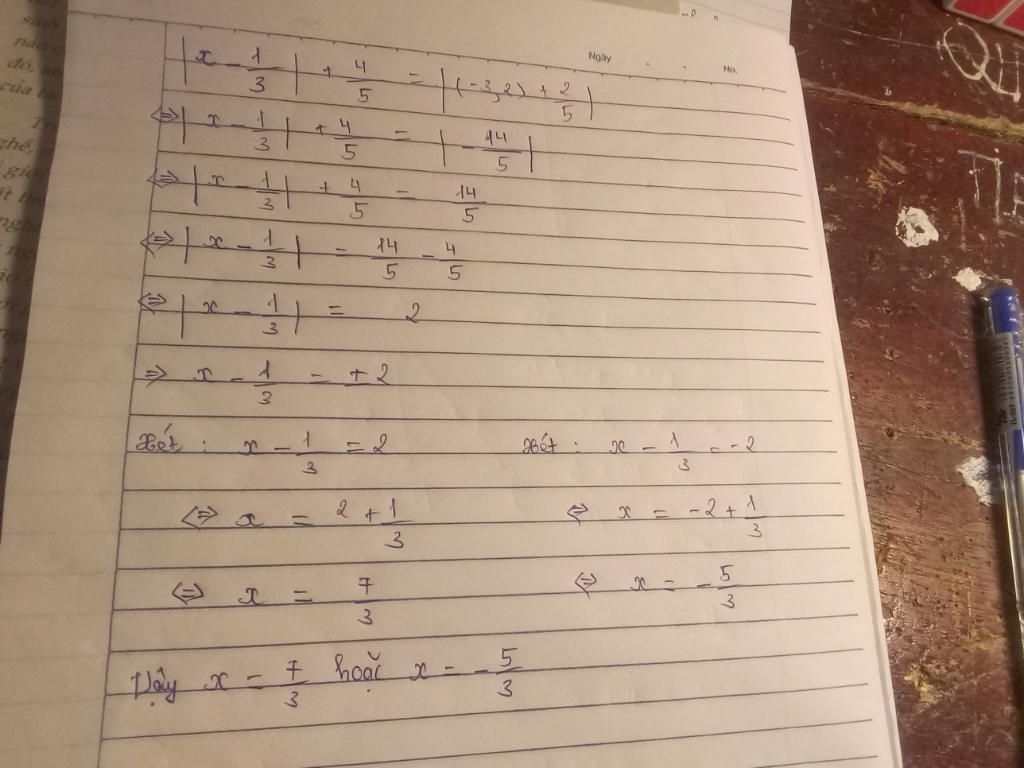 Ngày . . No.
|x - 1/3| + 4/5 = |(-3,2) + 2/5|
⇔ |x - 1/3| + 4/5 = |- 14/5|
⇔ |x - 1/3| + 4/5 = 14/5
⇔ |x - 1/3| = 14/5 - 4/5
⇔ |x - 1/3| = 2
⇒ x - 1/3 = ±2
Xét : x - 1/3 = 2 Xét : x - 1/3 = -2
⇔ x = 2 + 1/3 ⇔ x = -2 + 1/3
⇔ x = 7/3 ⇔ x = - 5/3
Vậy x = 7/3 hoặc x = - 5/3